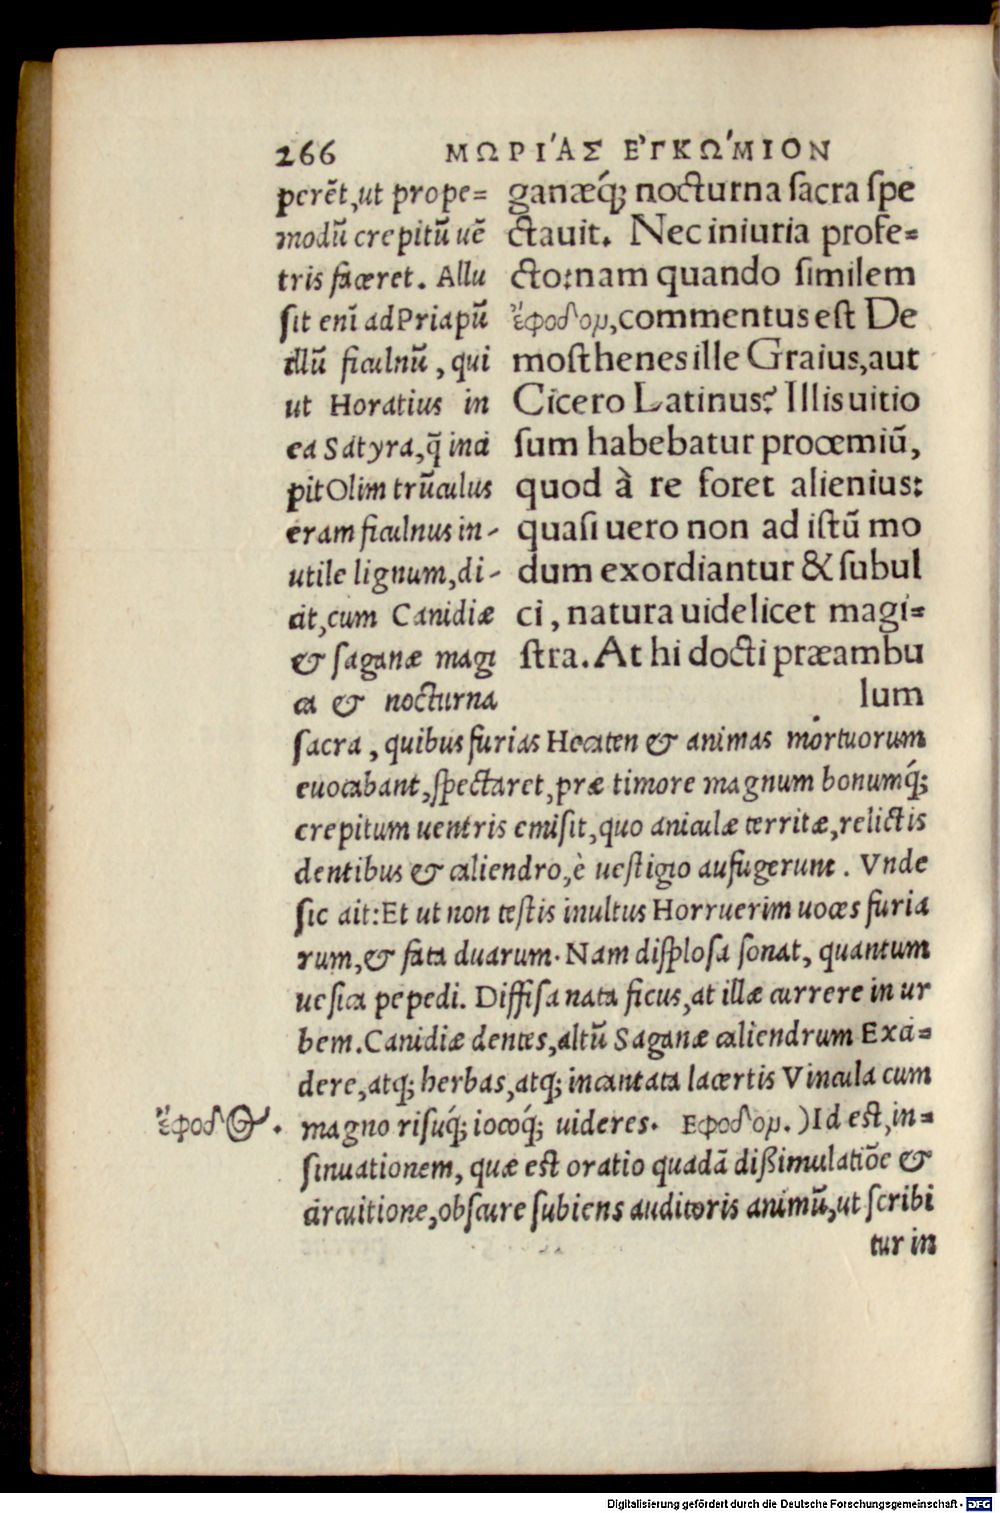 266 ΜΩΡΙ´ΑΣ ΕʼΓΚΩ´ΜΙΟΝ
perẽt,ut prope=
modũ crepitũ uẽ
tris faceret. Allu
sit enĩ ad Priapũ
illũ ficulnũ, qui
ut Horatius in
ea Satyra,q̃ inci
pit Olim trũculus
eram ficulnus in-
utile lignum,di-
cit,cum Canidiæ
& saganæ magi
ca & nocturna
ganæq́; nocturna sacra spe
ctauit. Nec iniuria profe=
cto:nam quando similem
ἔφοδομ,commentus est De
mosthenes ille Graius,aut
Cicero Latinus? Illis uitio
sum habebatur proœmiũ,
quod à re foret alienius:
quasi uero non ad istũ mo
dum exordiantur & subul
ci, natura uidelicet magi=
stra. At hi docti præambu
lum
sacra, quibus furias Hecaten & animas mortuorum
euocabant,spectaret,præ timore magnum bonumq́;
crepitum uentris emisit,quo aniculæ territæ,relictis
dentibus & caliendro,è uestigio aufugerunt. Vnde
sic ait:Et ut non testis inultus Horruerim uoces furia
rum,& fata duarum. Nam displosa sonat, quantum
uesica pepedi. Diffisa nata ficus,at illæ currere in ur
bem.Canidiæ dentes,altũ Saganæ caliendrum Exci=
dere,atq; herbas,atq; incantata lacertis Vincula cum
ἔφοδος. magno risuq́; iocoq́; uideres. Εφοδομ.)Id est,in=
sinuationem, quæ est oratio quadã dißimulatiõe &
circuitione,obscure subiens auditoris animũ,ut scribi
tur in
Digitalisierung gefördert durch die Deutsche Forschungsgemeinschaft - DFG